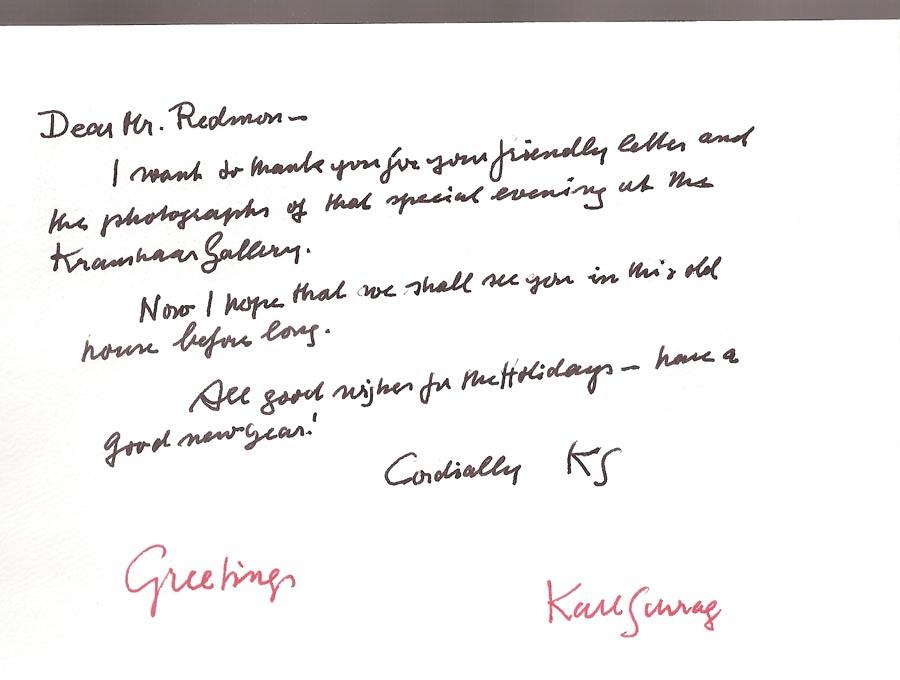 Dear Mr. Redmon—
I want to thank you for your friendly letter and
the photographs of that special evening at the
Kraushaar Gallery.
Now I hope that we shall see you in this old
house before long.
All good wishes for the Holidays — have a
good new year!
Cordially KS
Greetings
Karl Schrag